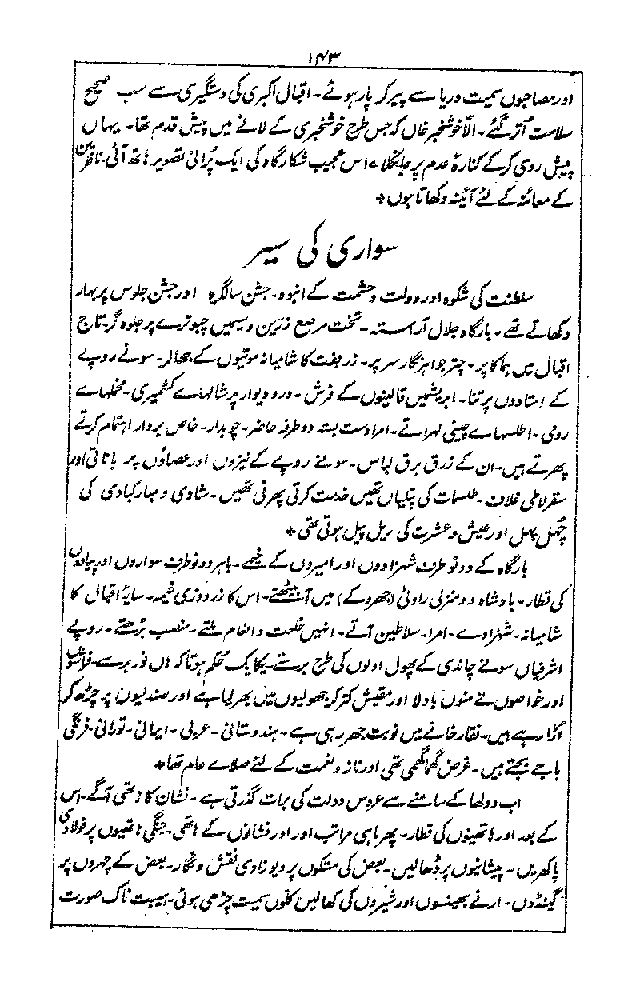 ۱۴۳
اور مصاحبوں سمیت دریا سے پیر کر پار ہوئے۔ اقبال اکبری کی دستگیری سے سب صحیح
سلامت اتر گئے۔ الّا خوشخبر خاں کہ جس طرح خوشخبری کے لانے میں پیش قدم تھا۔ یہاں
پیش روی کرکے کنارۂ عدم پر جا نکلا۔ اس عجیب شکارگاہ کی ایک پُرانی تصویر ہاتھ آئی۔ ناظرین
کے معائنہ کے لئے آئینہ دکھاتا ہوں٭
سواری کی سیر
سلطنت کی شکوہ اور دولت و حشمت کے انبوہ۔ جشن سالگرہ اور جشن جلوس پر بہار
دکھاتے تھے۔ بارگاہ جلال آراستہ۔ تخت مرصع زرین و سیمیں چبوترے پر جلوہ گر۔ تاج
اقبال میں ہما کا پر۔ چتر جواہر نگار سر پر۔ زربفت کا شامیانہ موتیوں کے جھالر۔ سونے روپے
کے استادوں پر تنا۔ ابریشمیں قالینوں کے فرش۔ در و دیوار پر شالہائے کشمیری۔ مخملہائے
رومی۔ اطلسہائے چینی لہراتے۔ امرا دست بستہ دو طرفہ حاضر۔ چوبدار۔ خاص بردار اہتمام کرتے
پھرتے ہیں۔ ان کے زرق برق لباس۔ سونے روپے کے نیزوں اور عصاؤں پر باناتی اور
سقرلاطی غلاف۔ طلسمات کی پتلیاں تھیں خدمت کرتی پھرتی تھیں۔ شادی و مبارکبادی کی
چہل پہل اور عیش و عشرت کی ریل پیل ہوتی تھی٭
بارگاہ کے دونو طرف شہزادوں اور امیروں کے خیمے۔ باہر دونو طرف سواروں اور پیادوں
کی قطار۔ بادشاہ دو منزلی راوٹی (جھروکے) میں آ بیٹھتے۔ اس کا زردوزی خیمہ۔ سایۂ اقبال کا
شامیانہ۔ شہزادے۔ امرا۔ سلاطین آتے۔ انہیں خلعت و انعام ملتے۔ منصب بڑھتے۔ روپے
اشرفیاں سونے چاندی کے پھول اولوں کی طرح برستے۔ یکایک حکم ہوتا کہ ہاں نور برسے۔ فراشوں
اور خواصوں نے منوں بادلا اور مقیش کتر کر جھولیوں میں بھر لیا ہے اور صندلیوں پر چڑھ کر
اڑا رہے ہیں۔ نقار خانے میں نوبت جھڑ رہی ہے۔ ہندوستانی۔ عربی۔ ایرانی۔ تورانی۔ فرنگی
باجے بجتے ہیں۔ غرض گھماگھمی تھی اور ناز و نعمت کے لئے صلائے عام تھا٭
اب دولھا کے سامنے سے عروس دولت کی برات گذرتی ہے۔ نشان کا ہاتھی آگے۔ اس
کے بعد اور ہاتھیوں کی قطار۔ پھر ماہی مراتب اور اور نشانوں کے ہاتھی۔ جنگی ہاتھیوں پر فولادی
پاکھریں۔ پیشانیوں پر ڈھالیں۔ بعض کی مستکوں پر دیوزادی نقش و نگار۔ بعض کے چہروں پر
گینڈوں۔ ارنے بھینسوں اور شیروں کی کھالیں کلوں سمیت چڑھی ہوئی۔ ہیبت ناک صورت